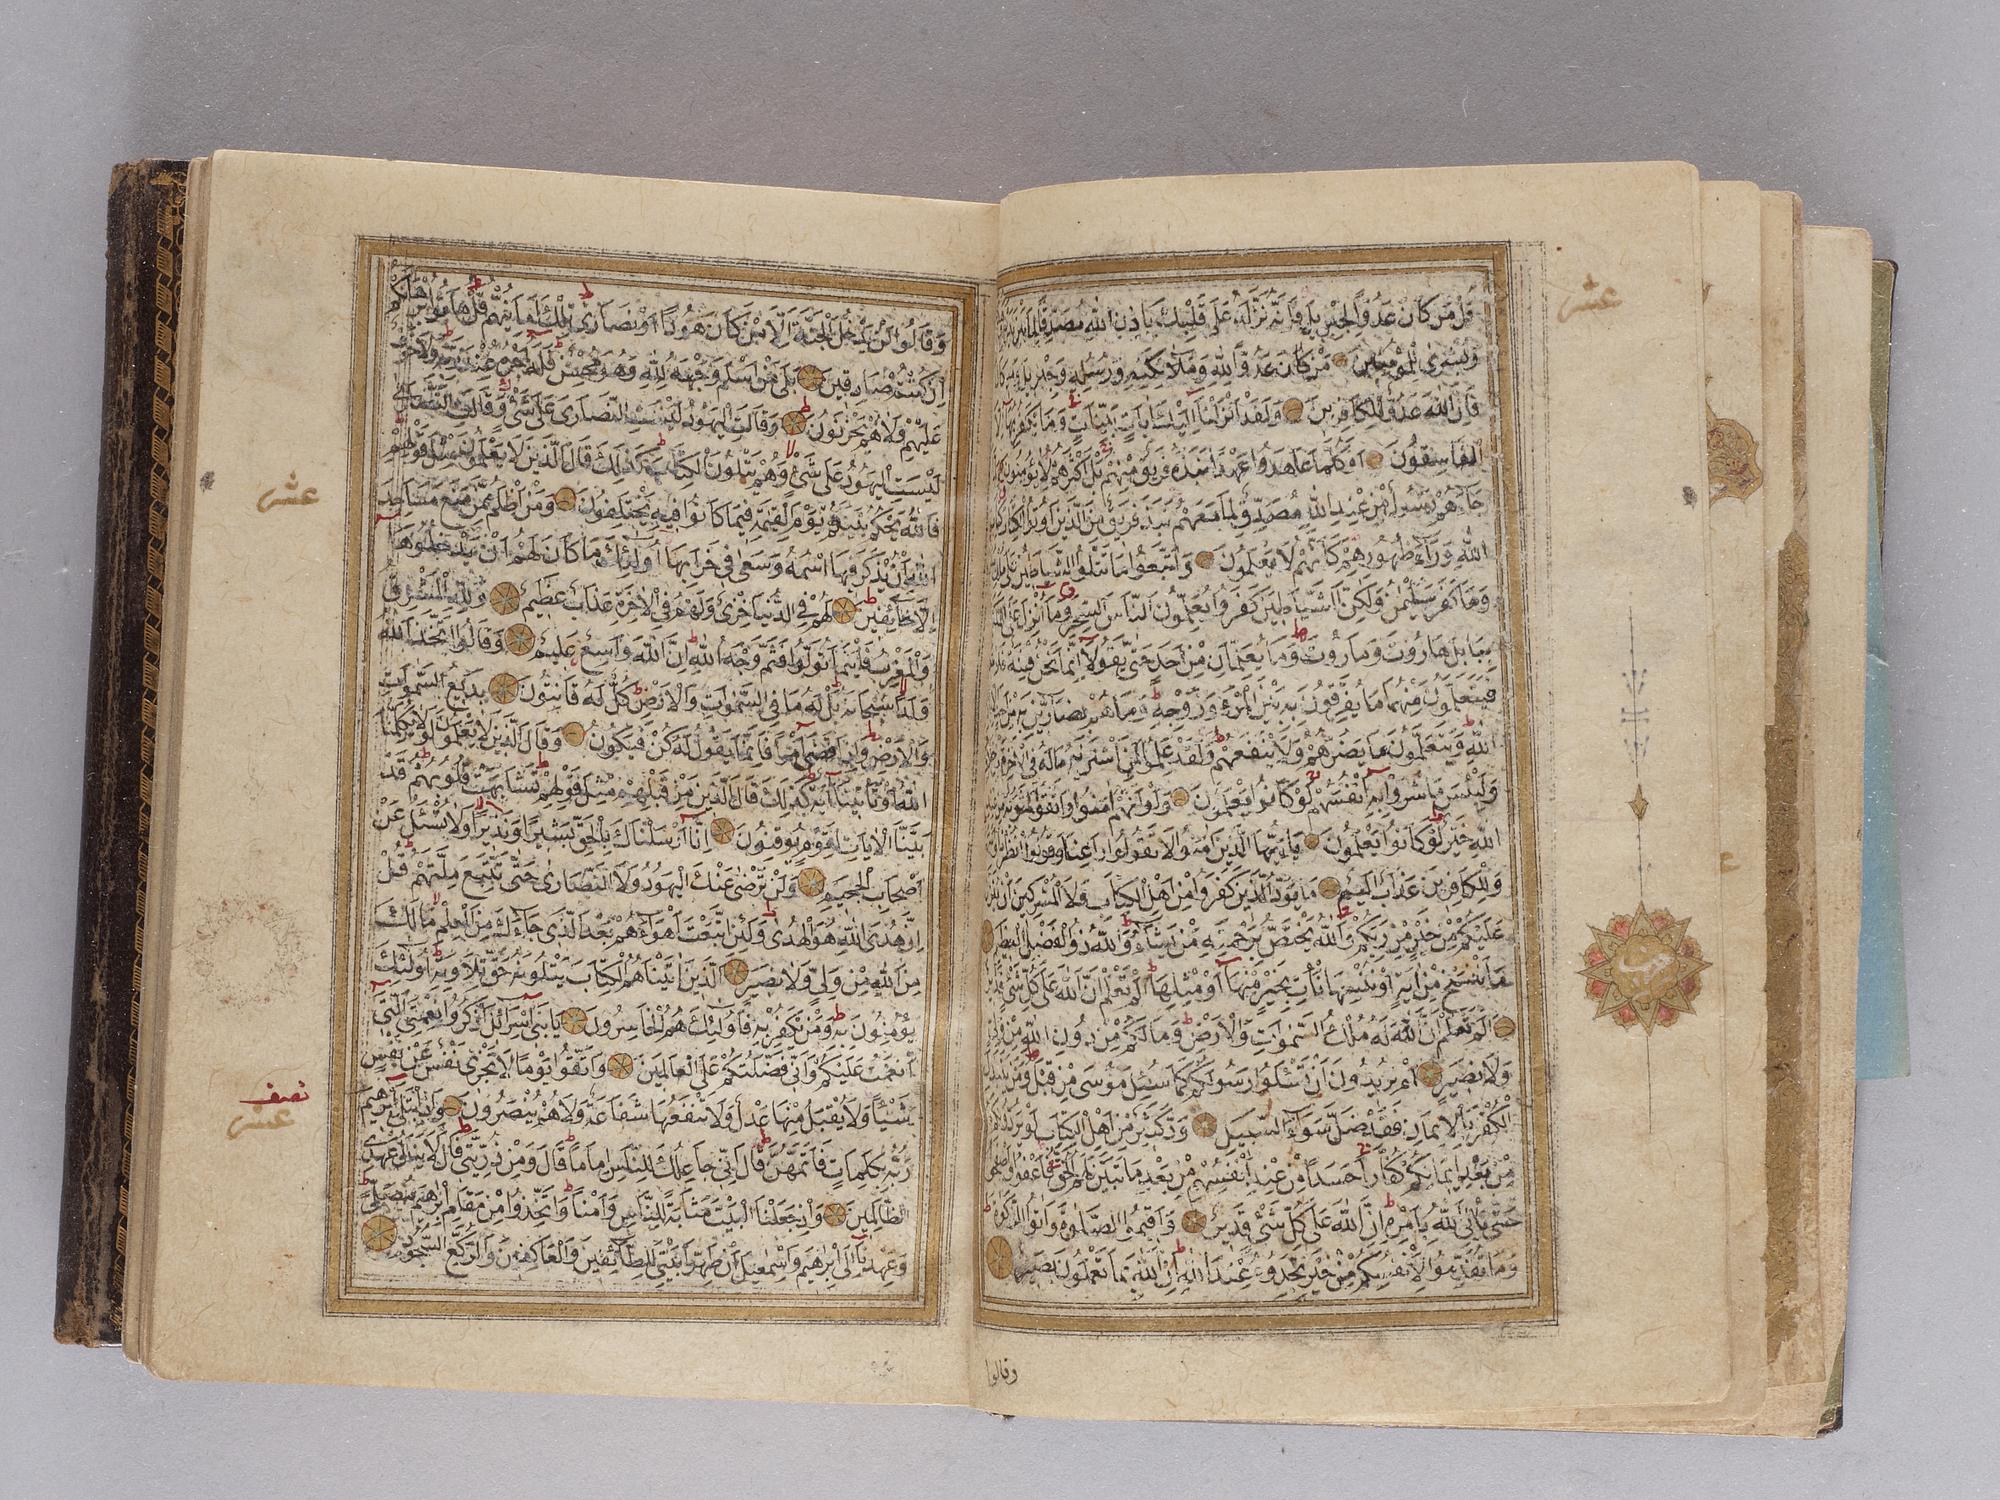 عشر
قُلْ مَنْ كَانَ عَدُوًّا لِجِبْرِيلَ فَإِنَّهُ نَزَّلَهُ عَلَى قَلْبِكَ بِإِذْنِ اللهِ مُصَدِّقًا لِمَا بَيْنَ يَدَيْهِ
وَبُشْرَى لِلْمُؤْمِنِينَ مَنْ كَانَ عَدُوًّا لِلّٰهِ وَمَلَائِكَتِهِ وَرُسُلِهِ وَجِبْرِيلَ وَمِيكَالَ
فَإِنَّ اللهَ عَدُوٌّ لِلْكَافِرِينَ وَلَقَدْ أَنْزَلْنَا إِلَيْكَ آيَاتٍ بَيِّنَاتٍ وَمَا يَكْفُرُ بِهَا إِلَّا
الْفَاسِقُونَ أَوَكُلَّمَا عَاهَدُوا عَهْدًا نَبَذَهُ فَرِيقٌ مِنْهُمْ بَلْ أَكْثَرُهُمْ لَا يُؤْمِنُونَ
جَاءَهُمْ رَسُولٌ مِنْ عِنْدِ اللهِ مُصَدِّقٌ لِمَا مَعَهُمْ نَبَذَ فَرِيقٌ مِنَ الَّذِينَ أُوتُوا الْكِتَابَ كِتَابَ
اللهِ وَرَاءَ ظُهُورِهِمْ كَأَنَّهُمْ لَا يَعْلَمُونَ وَاتَّبَعُوا مَا تَتْلُوا الشَّيَاطِينُ عَلَى مُلْكِ
وَمَا كَفَرَ سُلَيْمٰنُ وَلٰكِنَّ الشَّيَاطِينَ كَفَرُوا يُعَلِّمُونَ النَّاسَ السِّحْرَ وَمَا أُنْزِلَ عَلَى
بِبَابِلَ هَارُوتَ وَمَارُوتَ وَمَا يُعَلِّمَانِ مِنْ أَحَدٍ حَتَّى يَقُولَا إِنَّمَا نَحْنُ فِتْنَةٌ فَلَا
فَيَتَعَلَّمُونَ مِنْهُمَا مَا يُفَرِّقُونَ بِهِ بَيْنَ الْمَرْءِ وَزَوْجِهِ وَمَا هُمْ بِضَارِّينَ بِهِ مِنْ أَحَدٍ
اللهِ وَيَتَعَلَّمُونَ مَا يَضُرُّهُمْ وَلَا يَنْفَعُهُمْ وَلَقَدْ عَلِمُوا لَمَنِ اشْتَرٰيهُ مَا لَهُ فِي الْآخِرَةِ مِنْ
وَلَبِئْسَ مَا شَرَوْا بِهِ أَنْفُسَهُمْ لَوْ كَانُوا يَعْلَمُونَ وَلَوْ أَنَّهُمْ آمَنُوا وَاتَّقَوْا لَمَثُوبَةٌ مِنْ
اللهِ خَيْرٌ لَوْ كَانُوا يَعْلَمُونَ يَا أَيُّهَا الَّذِينَ آمَنُوا لَا تَقُولُوا رَاعِنَا وَقُولُوا انْظُرْنَا
وَلِلْكَافِرِينَ عَذَابٌ أَلِيمٌ مَا يَوَدُّ الَّذِينَ كَفَرُوا مِنْ أَهْلِ الْكِتَابِ وَلَا الْمُشْرِكِينَ أَنْ
عَلَيْكُمْ مِنْ خَيْرٍ مِنْ رَبِّكُمْ وَاللهُ يَخْتَصُّ بِرَحْمَتِهِ مَنْ يَشَاءُ وَاللهُ ذُو الْفَضْلِ الْعَظِيمِ
مَا نَنْسَخْ مِنْ آيَةٍ أَوْ نُنْسِهَا نَأْتِ بِخَيْرٍ مِنْهَا أَوْ مِثْلِهَا أَلَمْ تَعْلَمْ أَنَّ اللهَ عَلَى كُلِّ شَيْءٍ قَدِيرٌ
أَلَمْ تَعْلَمْ أَنَّ اللهَ لَهُ مُلْكُ السَّمٰوَاتِ وَالْأَرْضِ وَمَا لَكُمْ مِنْ دُونِ اللهِ مِنْ وَلِيٍّ
وَلَا نَصِيرٍ أَمْ تُرِيدُونَ أَنْ تَسْئَلُوا رَسُولَكُمْ كَمَا سُئِلَ مُوسَى مِنْ قَبْلُ وَمَنْ يَتَبَدَّلِ
الْكُفْرَ بِالْإِيمَانِ فَقَدْ ضَلَّ سَوَاءَ السَّبِيلِ وَدَّ كَثِيرٌ مِنْ أَهْلِ الْكِتَابِ لَوْ يَرُدُّونَكُمْ
مِنْ بَعْدِ إِيمَانِكُمْ كُفَّارًا حَسَدًا مِنْ عِنْدِ أَنْفُسِهِمْ مِنْ بَعْدِ مَا تَبَيَّنَ لَهُمُ الْحَقُّ فَاعْفُوا وَاصْفَحُوا
حَتَّى يَأْتِيَ اللهُ بِأَمْرِهِ إِنَّ اللهَ عَلَى كُلِّ شَيْءٍ قَدِيرٌ وَأَقِيمُوا الصَّلٰوةَ وَآتُوا الزَّكٰوةَ
وَمَا تُقَدِّمُوا لِأَنْفُسِكُمْ مِنْ خَيْرٍ تَجِدُوهُ عِنْدَ اللهِ إِنَّ اللهَ بِمَا تَعْمَلُونَ بَصِيرٌ
وقالوا
وَقَالُوا لَنْ يَدْخُلَ الْجَنَّةَ إِلَّا مَنْ كَانَ هُودًا أَوْ نَصَارَى تِلْكَ أَمَانِيُّهُمْ قُلْ هَاتُوا بُرْهَانَكُمْ
إِنْ كُنْتُمْ صَادِقِينَ بَلَى مَنْ أَسْلَمَ وَجْهَهُ لِلّٰهِ وَهُوَ مُحْسِنٌ فَلَهُ أَجْرُهُ عِنْدَ رَبِّهِ وَلَا خَوْفٌ
عَلَيْهِمْ وَلَا هُمْ يَحْزَنُونَ وَقَالَتِ الْيَهُودُ لَيْسَتِ النَّصَارَى عَلَى شَيْءٍ وَقَالَتِ النَّصَارَى
لَيْسَتِ الْيَهُودُ عَلَى شَيْءٍ وَهُمْ يَتْلُونَ الْكِتَابَ كَذٰلِكَ قَالَ الَّذِينَ لَا يَعْلَمُونَ مِثْلَ قَوْلِهِمْ
فَاللهُ يَحْكُمُ بَيْنَهُمْ يَوْمَ الْقِيٰمَةِ فِيمَا كَانُوا فِيهِ يَخْتَلِفُونَ وَمَنْ أَظْلَمُ مِمَّنْ مَنَعَ مَسَاجِدَ
اللهِ أَنْ يُذْكَرَ فِيهَا اسْمُهُ وَسَعَى فِي خَرَابِهَا أُولٰئِكَ مَا كَانَ لَهُمْ أَنْ يَدْخُلُوهَا
إِلَّا خَائِفِينَ لَهُمْ فِي الدُّنْيَا خِزْيٌ وَلَهُمْ فِي الْآخِرَةِ عَذَابٌ عَظِيمٌ وَلِلّٰهِ الْمَشْرِقُ
وَالْمَغْرِبُ فَأَيْنَمَا تُوَلُّوا فَثَمَّ وَجْهُ اللهِ إِنَّ اللهَ وَاسِعٌ عَلِيمٌ وَقَالُوا اتَّخَذَ اللهُ
وَلَدًا سُبْحَانَهُ بَلْ لَهُ مَا فِي السَّمٰوَاتِ وَالْأَرْضِ كُلٌّ لَهُ قَانِتُونَ بَدِيعُ السَّمٰوَاتِ
وَالْأَرْضِ وَإِذَا قَضَى أَمْرًا فَإِنَّمَا يَقُولُ لَهُ كُنْ فَيَكُونُ وَقَالَ الَّذِينَ لَا يَعْلَمُونَ لَوْلَا يُكَلِّمُنَا
اللهُ أَوْ تَأْتِينَا آيَةٌ كَذٰلِكَ قَالَ الَّذِينَ مِنْ قَبْلِهِمْ مِثْلَ قَوْلِهِمْ تَشَابَهَتْ قُلُوبُهُمْ قَدْ
بَيَّنَّا الْآيَاتِ لِقَوْمٍ يُوقِنُونَ إِنَّا أَرْسَلْنَاكَ بِالْحَقِّ بَشِيرًا وَنَذِيرًا وَلَا تُسْئَلُ عَنْ
أَصْحَابِ الْجَحِيمِ وَلَنْ تَرْضَى عَنْكَ الْيَهُودُ وَلَا النَّصَارَى حَتَّى تَتَّبِعَ مِلَّتَهُمْ قُلْ
إِنَّ هُدَى اللهِ هُوَ الْهُدَى وَلَئِنِ اتَّبَعْتَ أَهْوَاءَهُمْ بَعْدَ الَّذِي جَاءَكَ مِنَ الْعِلْمِ مَا لَكَ
مِنَ اللهِ مِنْ وَلِيٍّ وَلَا نَصِيرٍ الَّذِينَ آتَيْنَاهُمُ الْكِتَابَ يَتْلُونَهُ حَقَّ تِلَاوَتِهِ أُولٰئِكَ
يُؤْمِنُونَ بِهِ وَمَنْ يَكْفُرْ بِهِ فَأُولٰئِكَ هُمُ الْخَاسِرُونَ يَا بَنِي إِسْرَائِيلَ اذْكُرُوا نِعْمَتِيَ الَّتِي
أَنْعَمْتُ عَلَيْكُمْ وَأَنِّي فَضَّلْتُكُمْ عَلَى الْعَالَمِينَ وَاتَّقُوا يَوْمًا لَا تَجْزِي نَفْسٌ عَنْ نَفْسٍ
شَيْئًا وَلَا يُقْبَلُ مِنْهَا عَدْلٌ وَلَا تَنْفَعُهَا شَفَاعَةٌ وَلَا هُمْ يُنْصَرُونَ وَإِذِ ابْتَلَى إِبْرٰهِيمَ
رَبُّهُ بِكَلِمَاتٍ فَأَتَمَّهُنَّ قَالَ إِنِّي جَاعِلُكَ لِلنَّاسِ إِمَامًا قَالَ وَمِنْ ذُرِّيَّتِي قَالَ لَا يَنَالُ عَهْدِي
الظَّالِمِينَ وَإِذْ جَعَلْنَا الْبَيْتَ مَثَابَةً لِلنَّاسِ وَأَمْنًا وَاتَّخِذُوا مِنْ مَقَامِ إِبْرٰهِيمَ مُصَلًّى
وَعَهِدْنَا إِلَى إِبْرٰهِيمَ وَإِسْمٰعِيلَ أَنْ طَهِّرَا بَيْتِيَ لِلطَّائِفِينَ وَالْعَاكِفِينَ وَالرُّكَّعِ السُّجُودِ
عشر
نصف
عشر